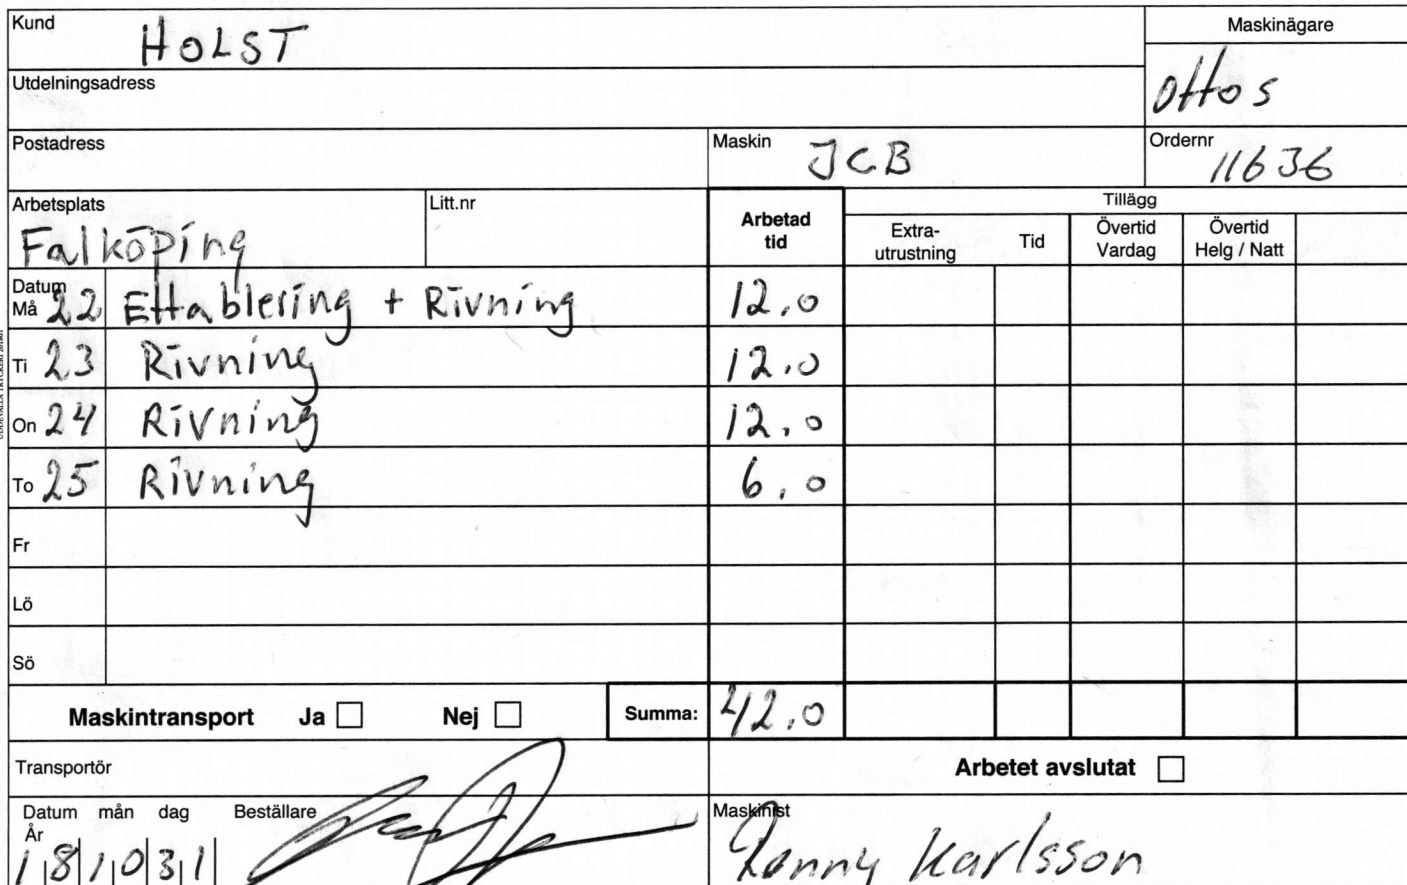 Kund HOLST Maskinägare
Utdelningsadress ottos
Postadress Maskin JCB Ordernr 11636
Arbetsplats Litt.nr Arbetad tid Tillägg
Falköping Extra-utrustning Tid Övertid Vardag Övertid Helg / Natt
Datum
Må 22 Ettablering + Rivning 12.0
Ti 23 Rivning 12.0
On 24 Rivning 12.0
To 25 Rivning 6.0
Fr
Lö
Sö
Maskintransport Ja Nej Summa: 42.0
Transportör Arbetet avslutat
Datum mån dag Beställare Maskinist
År
181031 Karlsson